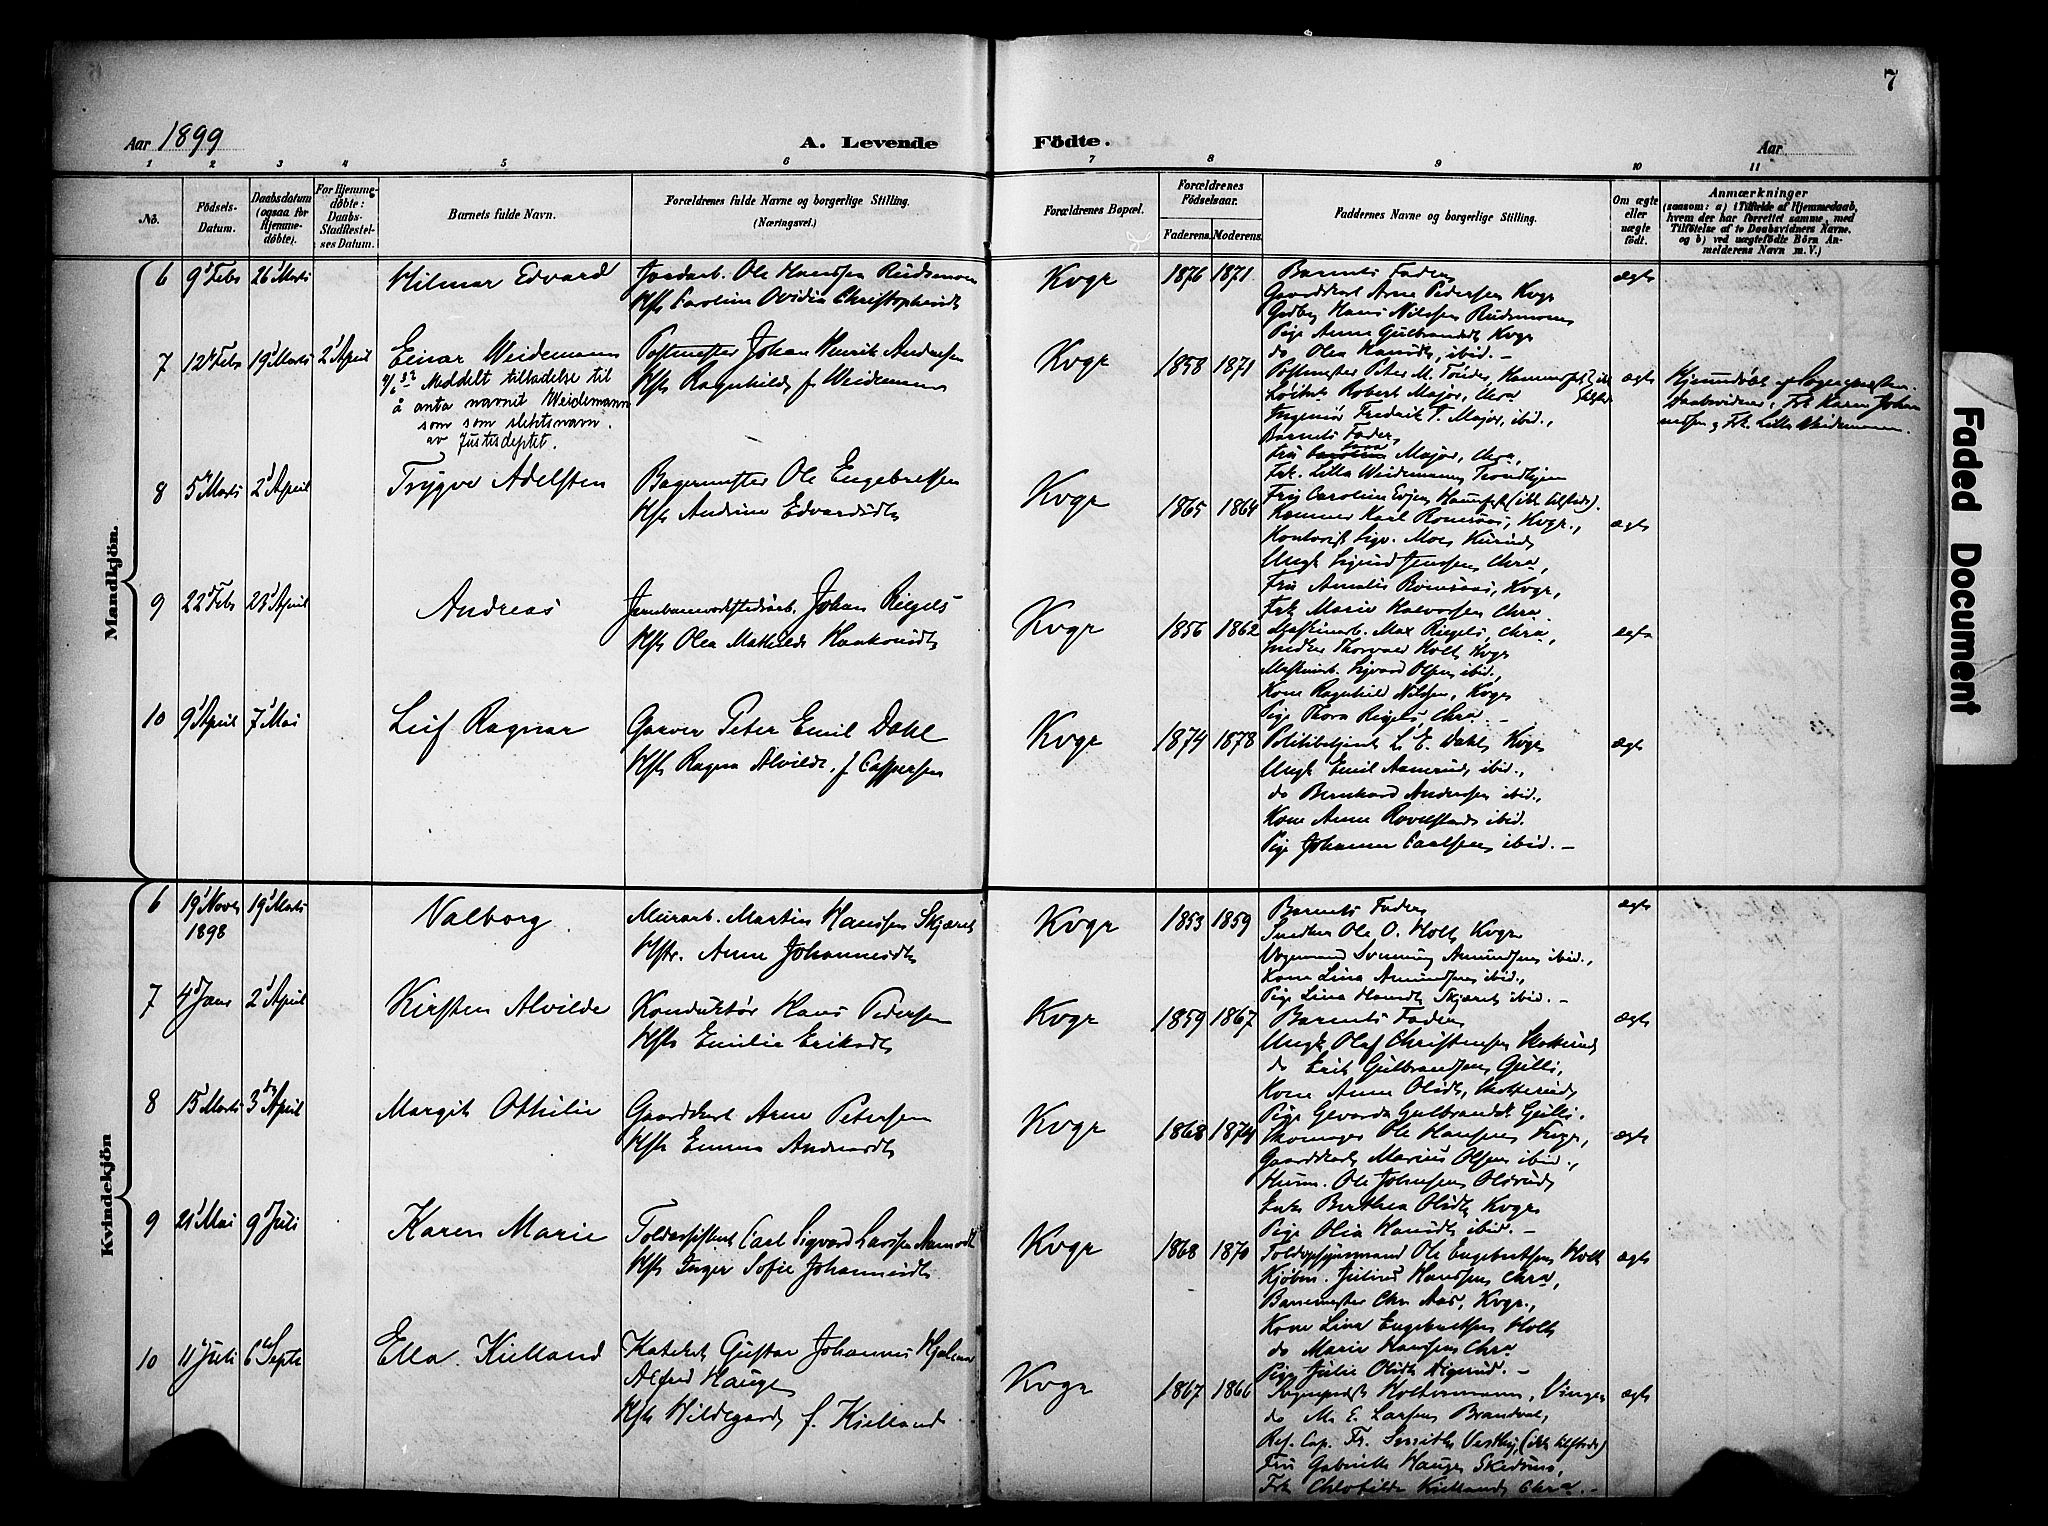 7
Aar 1899
A. Levende
Födte.
Aar
1 2 3 4 5 6 7 8 9 10 11
No.
Födsels-Datum.
Daabsdatum (ogsaa for Hjemme-döbte).
For Hjemme-döbte: Daabs-Stadfæstelses Datum.
Barnets fulde Navn.
Forældrenes fulde Navne og borgerlige Stilling. (Næringsvei.)
Forældrenes Bopæl.
Forældrenes Födselsaar.
Faderens. Moderens.
Faddernes Navne og borgerlige Stilling.
Om ægte eller uægte födt.
Anmærkninger
(saasom: a) i Tilfælde af Hjemmedaab, hvem der har forrettet samme, med Tilföielse af to Daabsvidners Navne. og b) ved uægtefödte Börn Anmelderens Navn m. V.)
Mandkjön.
6 9 Febr 26 Marts Hilmar Edvard
Jordarb. Ole Hanssen Rudsmoen
Hst Caroline Ovidia Christophersdt
Kvgr 1876 1871
Barnets Fader
Gaardkarl Arne Pedersen Kvgr
Hans Nilssen Rudsmoen
Pige Anna Gulbrandsdt Kvgr
do Olea Hansdt, ibid. –
ægte
7 12 Febr 19 Marts 2 April Einar Weidemann
Meddelt tilladelse til
å anta navnet Weidemann
som som slektsnavn.
av Justisdeptet.
Postmester Johan Henrik Andresen
Hst Ragnhild f. Weidemann
Kvgr 1858 1871
Postmester Peter M. Tönder,
Robert Major, Chra
Ingeniør Fredrik T. Major, ibid.,
Barnets Fader,
Fru Major, Chra,
Frk. Lilla Weidemann, Trondhjem
Fru Caroline (ikke tilstede).
ægte
Hjemmedöbt af Sognepresten.
Daabsvidner: Frk Karen Johannessen og Frk. Lilla Weidemann.
8 5 Marts 2 April Trygve Adelsten
Bagermester Ole Engebretsen
Hst Andrine Edvardsdt
Kvgr 1865 1864
Karl Romsaas, Kvgr.,
Kontorist Sigv. Moe
Ungk Sigurd Jenssen Chra,
Fru Amalie Romsaas, Kvgr,
Frk Marie Halvorsen Chra.
ægte
9 22 Febr 23 April Andreas
Johan Riegels
Hst Olea Mathilde Haakonsdt
Kvgr 1856 1862
Max Riegels, Chra,
Snedker Thorvald Holt Kvgr
Maskinarb. Sigvard Olsen ibid.,
Kone Ragnhild Nilssen, Kvgr
Pige Thora Riegels, Chra. –
ægte
10 9 April 7 Mai Leif Ragnar
Garver Peter Emil Dahl
Hst Ragna Alvilde f. Caspersen
Kvgr 1874 1878
Politibetjent L. E. Dahl, Kvgr
Ungk Emil Aamrud, ibid.,
do Bernhard Andersen ibid.,
Kone Anne ibid.
Pige Johanne Carlsen ibid. –
ægte
Kvindekjön
6 19 Novbr 1898 19 Marts Valborg
Murarb. Martin Hanssen Skjæret
Hstr. Anne Johannesdt
Kvgr 1853 1859
Barnets Fader
Snedker Ole O. Holt Kvgr
Amundsen ibid.,
Kone Lina Amundsen ibid.,
Pige Lina Hansdt Skjæret ibid. –
ægte
7 4 Janr 2 April Kirsten Alvilde
Konduktør Hans Pedersen
Hst Emilie Eriksdt
Kvgr 1859 1867
Barnets Fader
Ungk Olaf Christensen Skotterud
do Erik Gulbrandsen Gulli,
Kone Anne Olsdt, Skotterud
Pige Gevarda Gulbrandsdt Gulli.
ægte
8 15 Marts 3 April Margit Othilie
Gaardkarl Arne Petersen
Hst Emma Andersdt
Kvgr 1868 1874
Skomager Ole Hansen Kvgr,
Gaardkarl Marius Olsen ibid.,
Ole Johnsen Olsrud
Enke Berthea Olsdt Kvgr
Pige Olia Hansdt ibid. –
ægte
9 21 Mai 9 Juli Karen Marie
Toldassistent Carl Sigvard Larssen
Hst Inger Sofie Johannesdt
Kvgr 1868 1870
Toldopsynsmand Ole Engebretsen Holt
Kjøbm. Julius Hanssen Chra,
Banemester Chr Aas, Kvgr.,
Kone Lina Engebretsen Holt
do Marie Hanssen Chra
Pige Julie Olsdt Digerud. –
ægte
10 11 Juli 6 Septr Ella Kielland
Kateket Gustav Johannes Hjalmar
Alfred Hauge
Hst Hildegard f. Kielland
Kvgr 1867 1866
Sogneprest Holtermann, Vinger
do M. E. Larsen Brandval,
Res. Cap. Fr. Smith Vestby, (ikke tilstede)
Fru Gabrielle Hauge Skedsmo,
Frk Chlotilde Kielland Chra. –
ægte
Faded Document